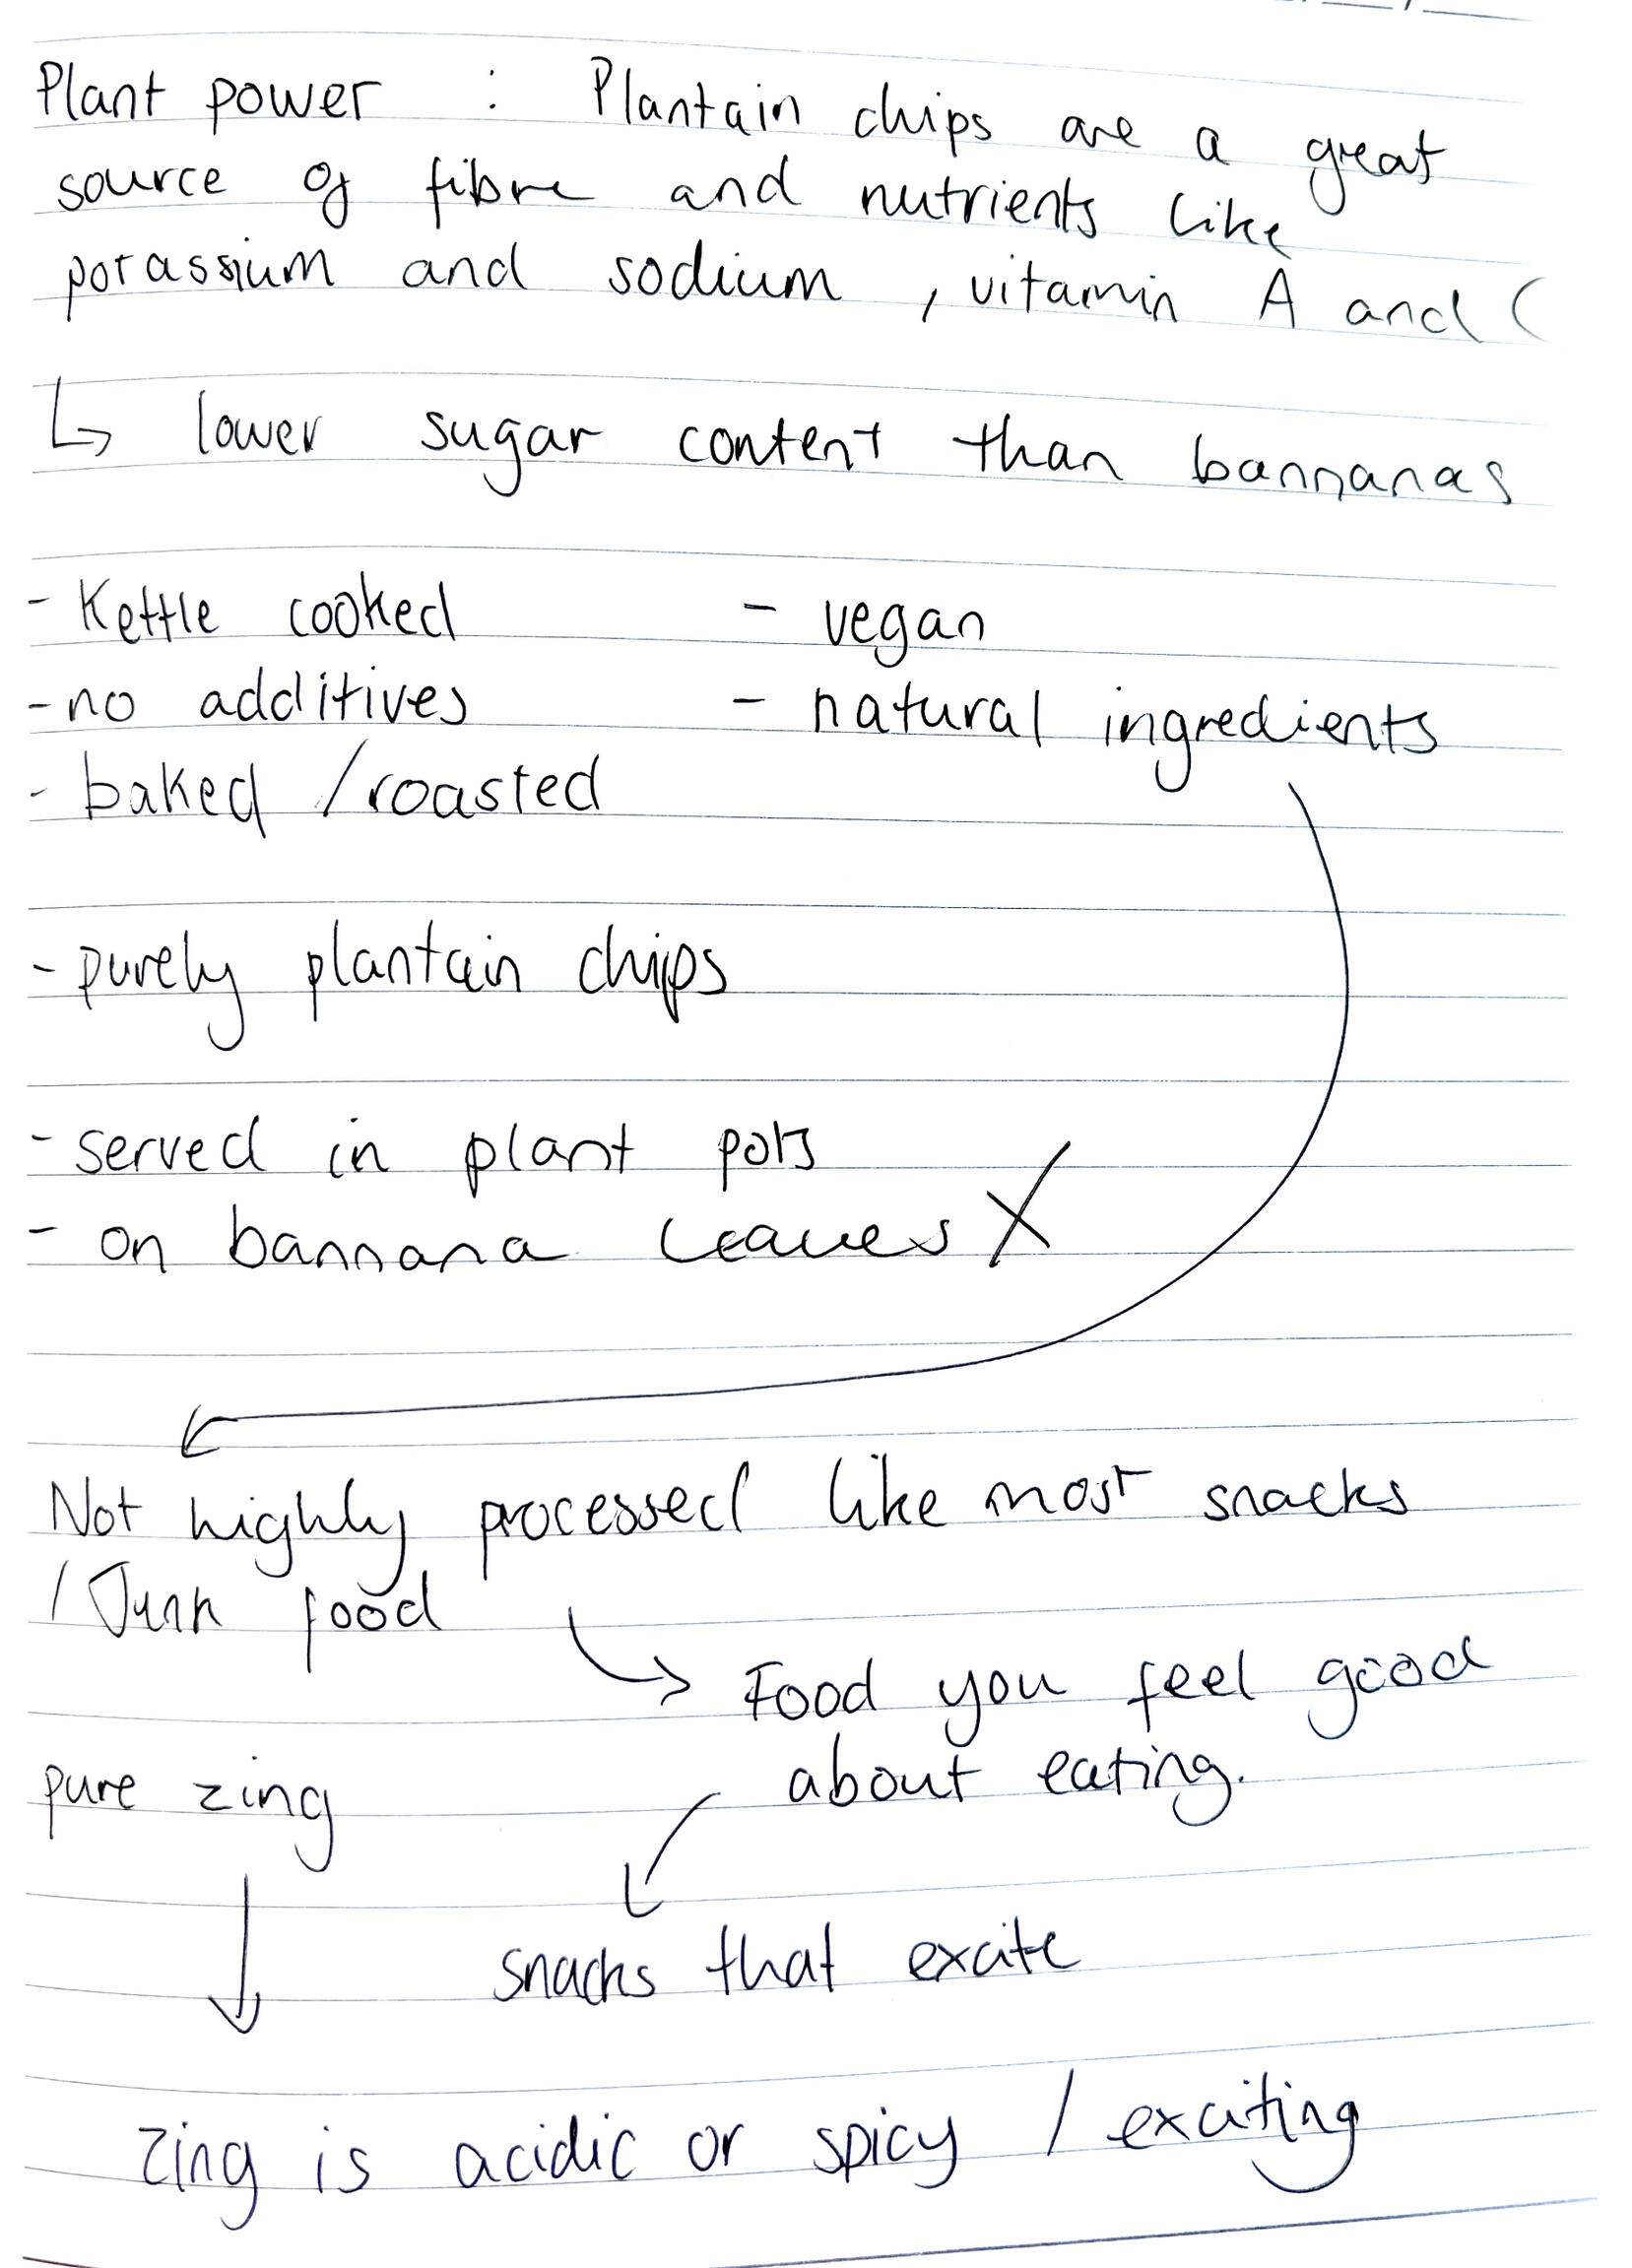 Plant power : Plantain chips are a great
source of fibre and nutrients like
potassium and sodium , vitamin A and C
↳ lower sugar content than bannanas
- Kettle cooked - vegan
- no additives - natural ingredients
- baked / roasted
- purely plantain chips
- served in plant pots
- on bannana leaves X
Not highly processed like most snacks
/ Junk food
→ Food you feel good
about eating.
pure zing
snacks that excite
zing is acidic or spicy / exciting